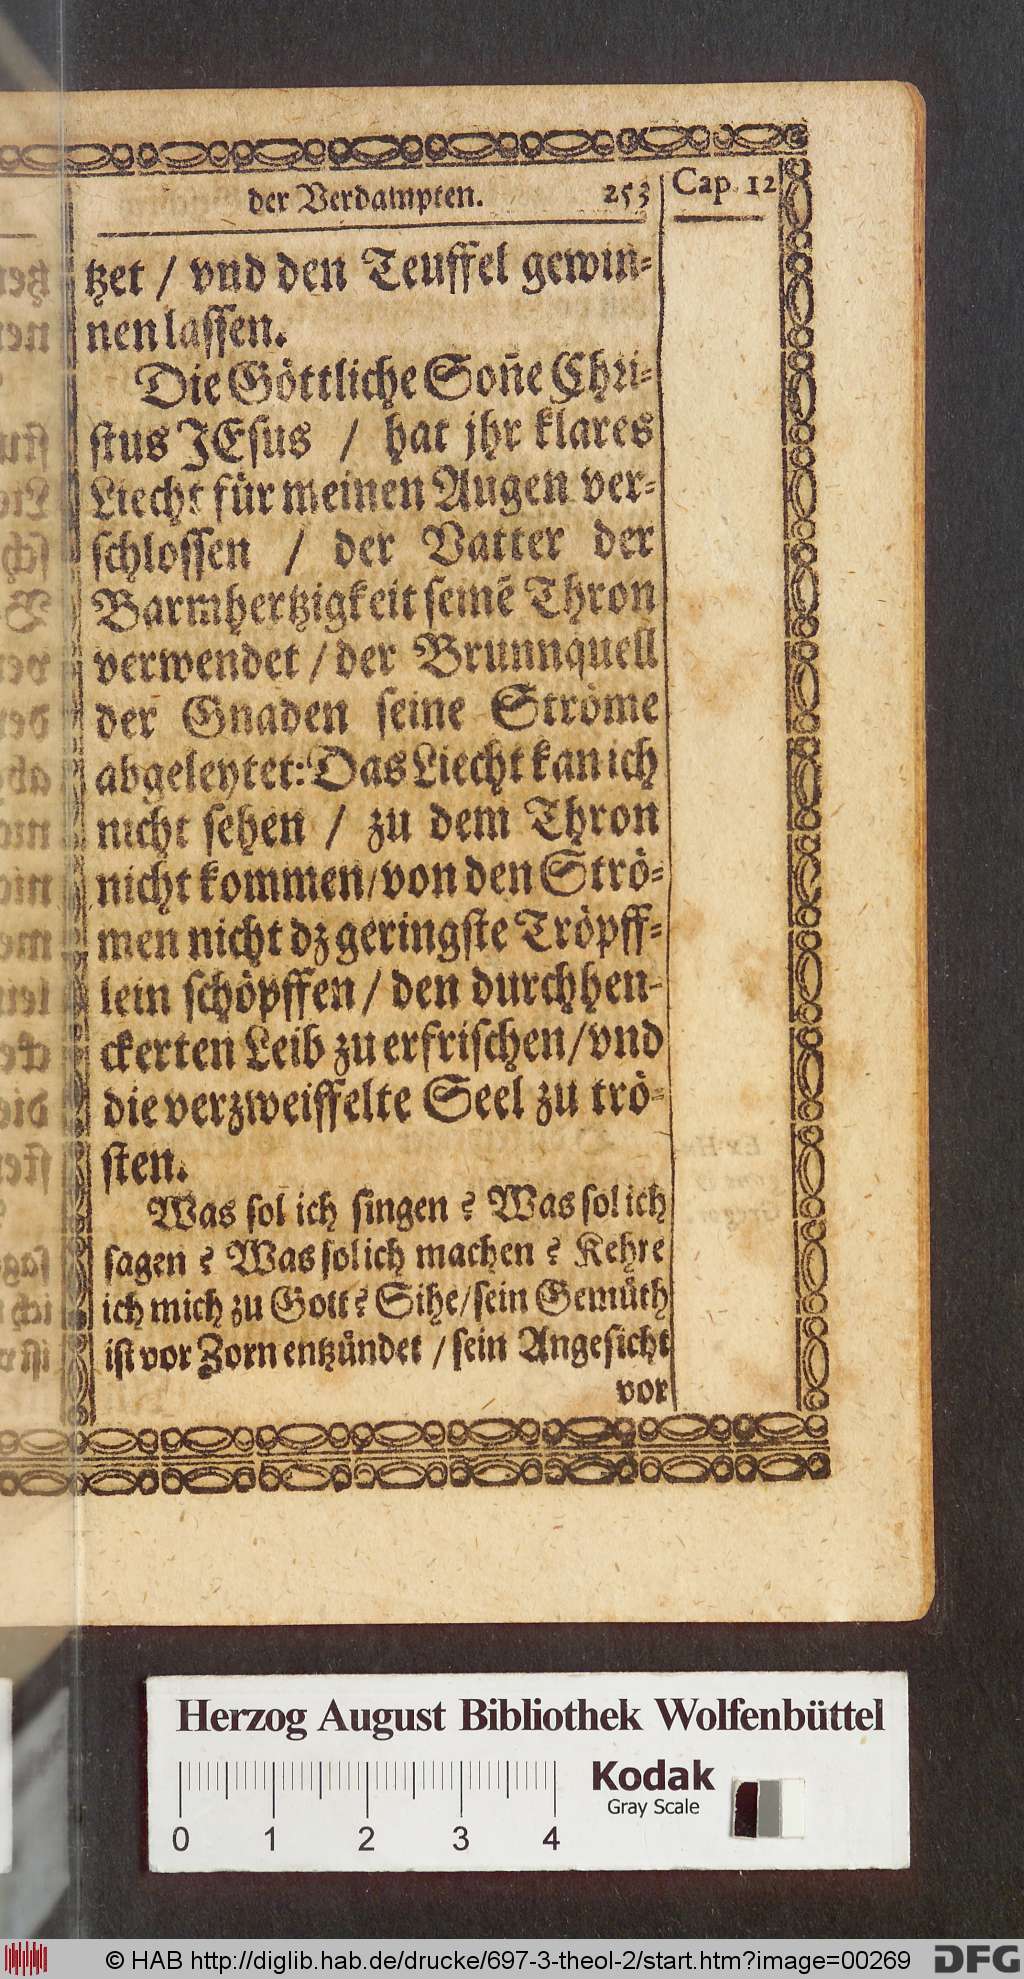 der Verdampten. 253 Cap. 12
tzet / vnd den Teuffel gewin-
nen lassen.
Die Göttliche Son̄e Chri-
stus JEsus / hat jhr klares
Liecht für meinen Augen ver-
schlossen / der Vatter der
Barmhertzigkeit seinē Thron
verwendet / der Brunnquell
der Gnaden seine Ströme
abgeleytet: Das Liecht kan ich
nicht sehen / zu dem Thron
nicht kommen/von den Strö-
men nicht dz geringste Tröpff-
lein schöpffen / den durchhen-
ckerten Leib zu erfrischen/vnd
die verzweiffelte Seel zu trö-
sten.
Was sol ich singen? Was sol ich
sagen? Was sol ich machen? Kehre
ich mich zu Gott? Sihe/sein Gemüth
ist vor Zorn entzündet / sein Angesicht
vor
Herzog August Bibliothek Wolfenbüttel
Kodak
Gray Scale
0 1 2 3 4
© HAB http://diglib.hab.de/drucke/697-3-theol-2/start.htm?image=00269 DFG